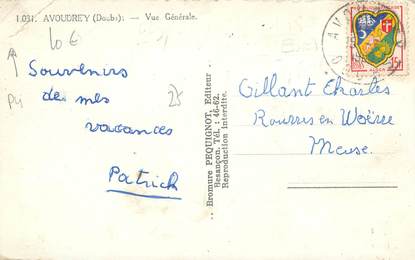 1.031. AVOUDREY (Doubs) — Vue Générale.
10 €
Souvenirs
de mes
vacances
Patrick
25
Bromure PEQUIGNOT, Editeur
Besançon. Tél. : 46-62.
Reproduction interdite.
Gillant Charles
en Woëvre
Meuse.
15F